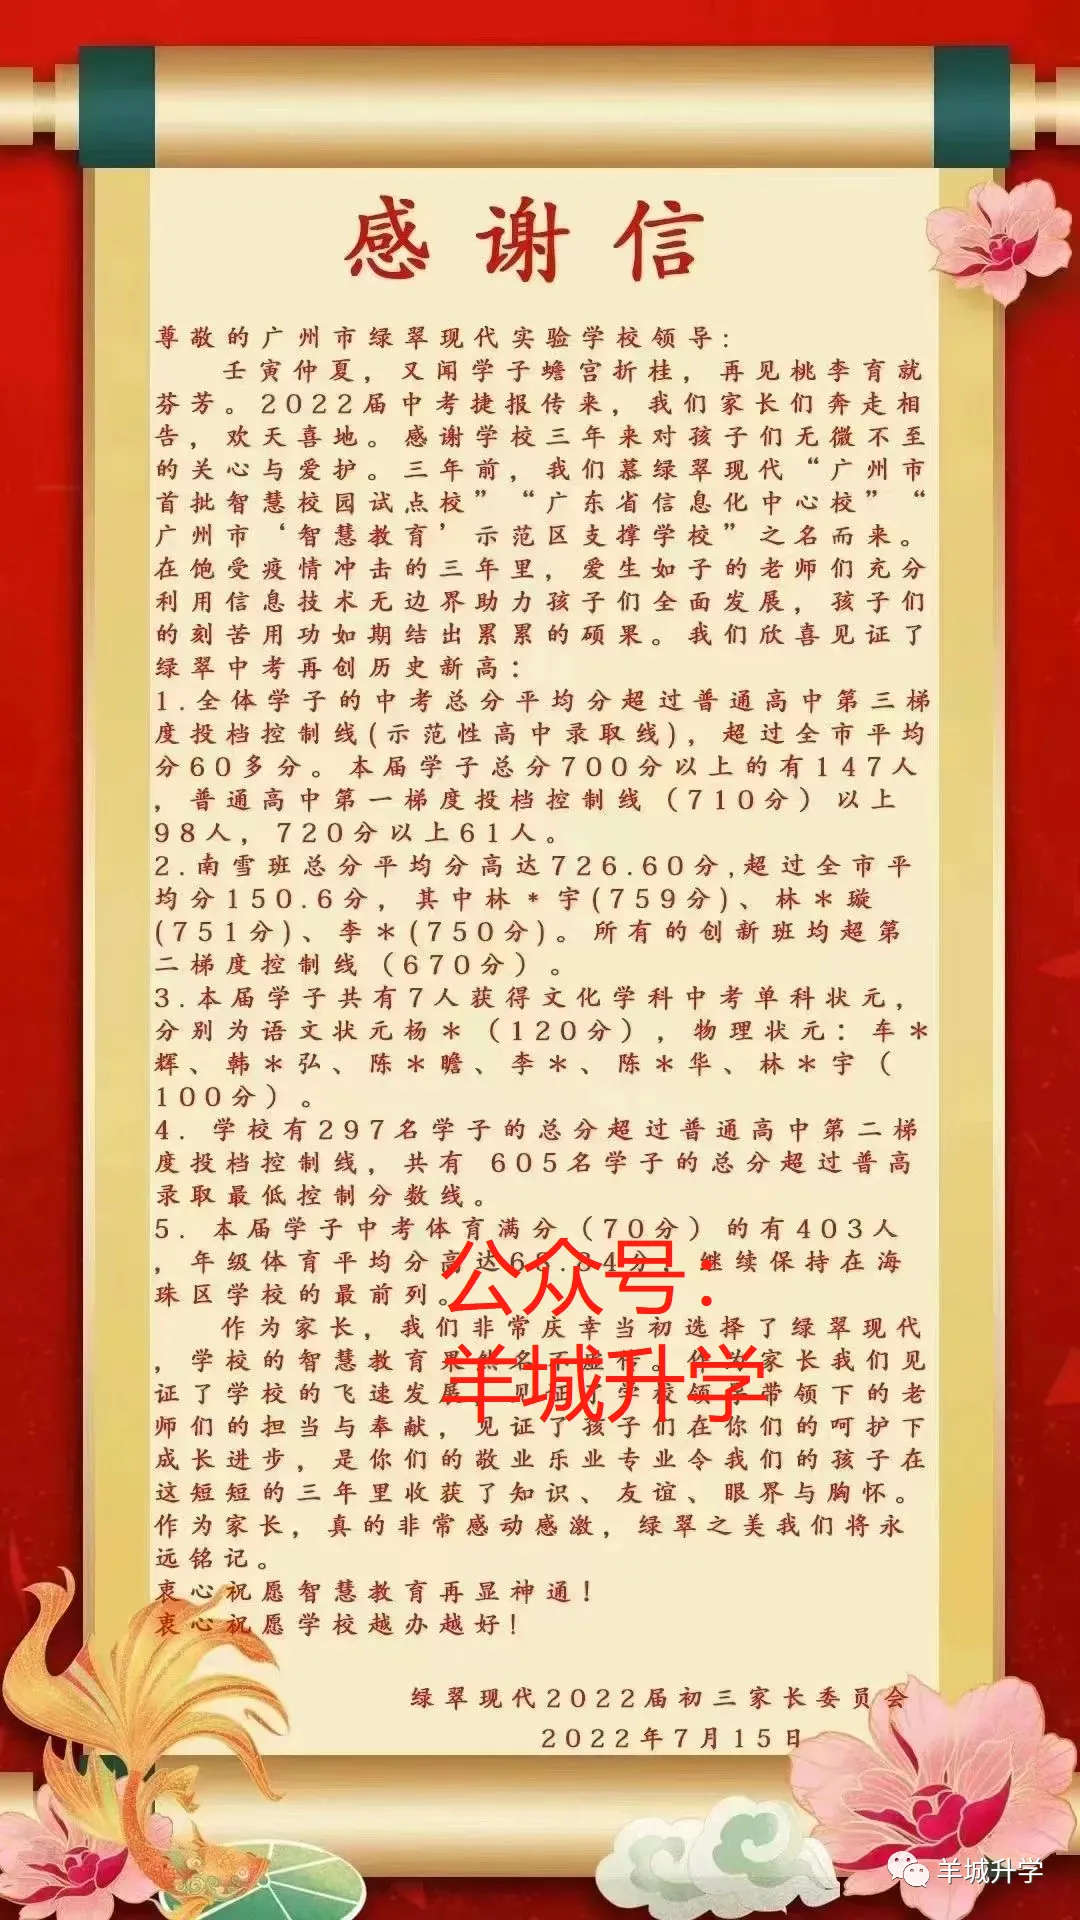 感谢信
尊敬的广州市绿翠现代实验学校领导：
壬寅仲夏，又闻学子蟾宫折桂，再见桃李育就
芬芳。2022届中考捷报传来，我们家长们奔走相
告，欢天喜地。感谢学校三年来对孩子们无微不至
的关心与爱护。三年前，我们慕绿翠现代“广州市
首批智慧校园试点校”“广东省信息化中心校”“
广州市‘智慧教育’示范区支撑学校”之名而来。
在饱受疫情冲击的三年里，爱生如子的老师们充分
利用信息技术无边界助力孩子们全面发展，孩子们
的刻苦用功如期结出累累的硕果。我们欣喜见证了
绿翠中考再创历史新高：
1.全体学子的中考总分平均分超过普通高中第三梯
度投档控制线(示范性高中录取线)，超过全市平均
分60多分。本届学子总分700分以上的有147人
，普通高中第一梯度投档控制线（710分）以上
98人，720分以上61人。
2.南雪班总分平均分高达726.60分,超过全市平
均分150.6分，其中林*宇(759分)、林＊璇
(751分)、李＊(750分)。所有的创新班均超第
二梯度控制线（670分）。
3.本届学子共有7人获得文化学科中考单科状元，
分别为语文状元杨＊（120分），物理状元：车＊
辉、韩＊弘、陈＊瞻、李＊、陈＊华、林＊宇（
100分）。
4. 学校有297名学子的总分超过普通高中第二梯
度投档控制线，共有 605名学子的总分超过普高
录取最低控制分数线。
5. 本届学子中考体育满分（70分）的有403人
，年级体育平均分高达68.84分，继续保持在海
珠区学校的最前列。
公众号：
作为家长，我们非常庆幸当初选择了绿翠现代
，学校的智慧教育果然名不虚传。作为家长我们见
羊城升学
证了学校的飞速发展，见证了学校领导带领下的老
师们的担当与奉献，见证了孩子们在你们的呵护下
成长进步，是你们的敬业乐业专业令我们的孩子在
这短短的三年里收获了知识、友谊、眼界与胸怀。
作为家长，真的非常感动感激，绿翠之美我们将永
远铭记。
衷心祝愿智慧教育再显神通！
衷心祝愿学校越办越好！
绿翠现代2022届初三家长委员会
2022年7月15日
羊城升学